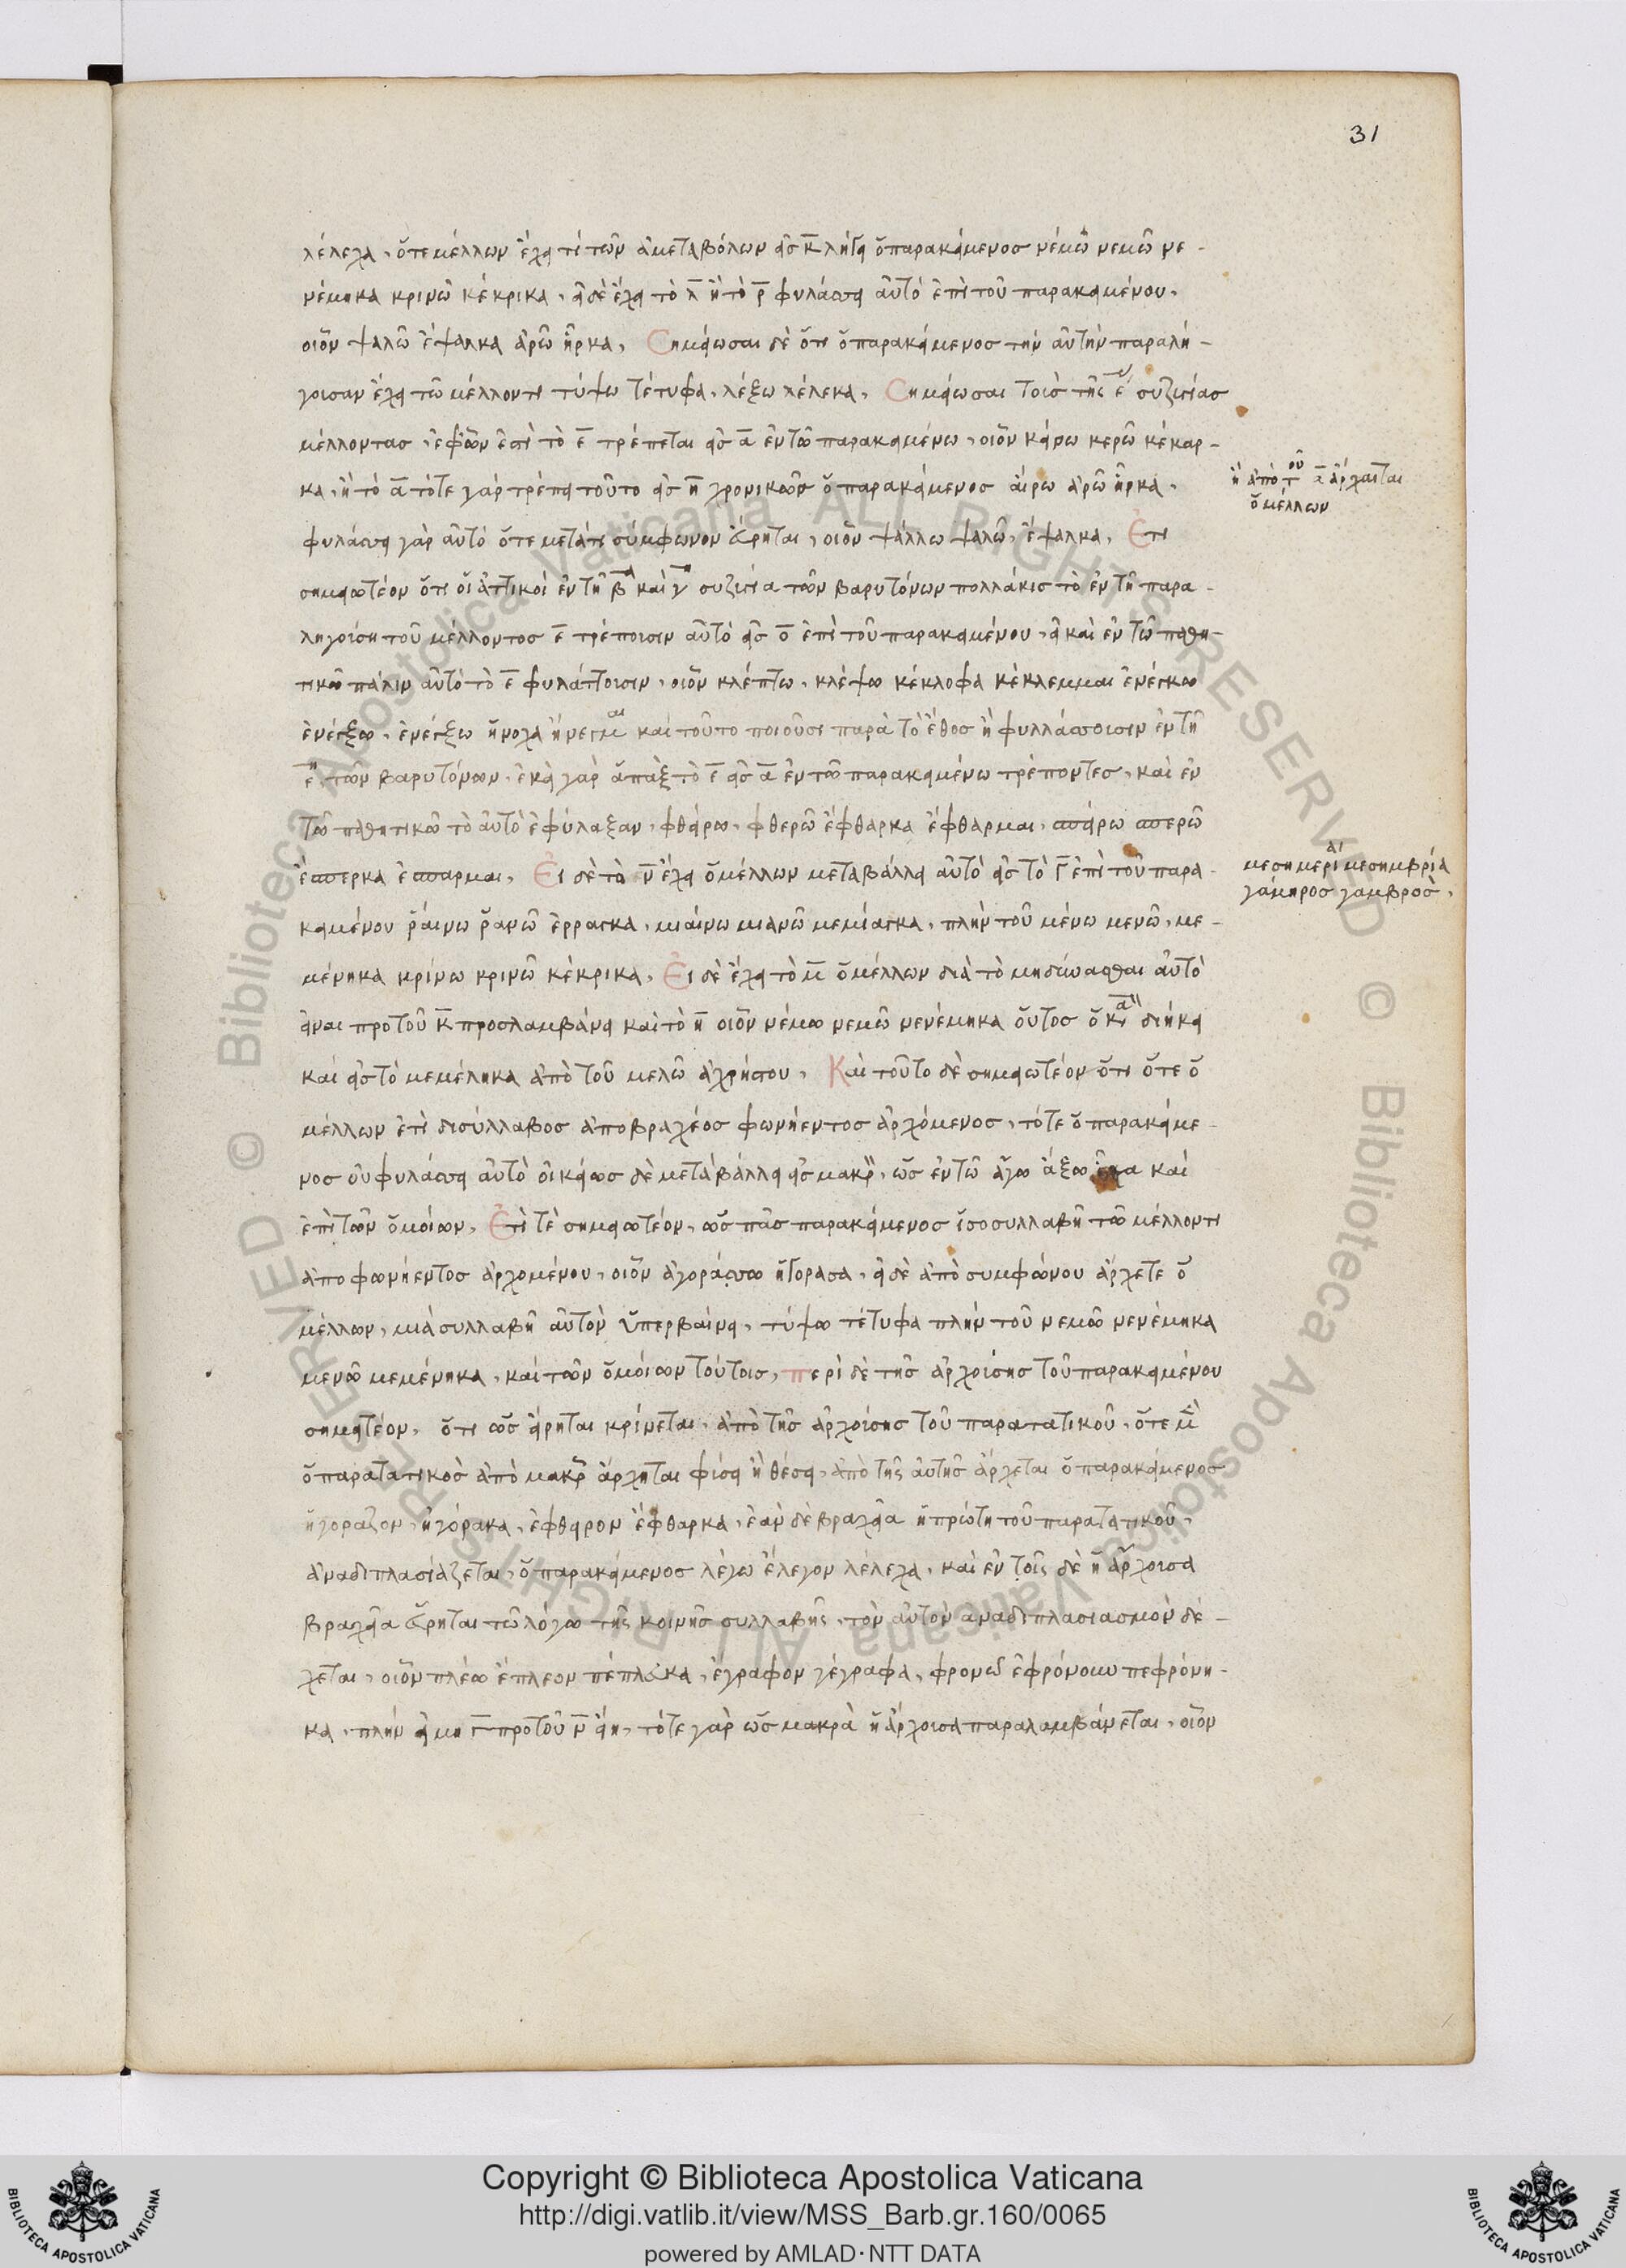 31
λέλεχα, ὅτε μέλλων ἔχει τὶ τῶν ἀμεταβόλων εἰς κ̅ λήγει ὁ παρακείμενος νέμω νεμῶ νε-
νέμηκα κρινῶ κέκρικα, εἰ δὲ ἔχει τὸ λ̅ ἢ τὸ ρ̅ φυλάσσει αὐτὸ ἐπὶ τοῦ παρακειμένου,
οἷον ψαλῶ ἔψαλκα ἀρῶ ἦρκα, Σημείωσαι δὲ ὅτι ὁ παρακείμενος τὴν αὐτὴν παραλή-
γουσαν ἔχει τῶ μέλλοντι τύψω τέτυφα, λέξω λέλεκα, Σημείωσαι τοὺς τῆς ε̅ συζυγίας
μέλλοντας, ἐφ' ὧν ἐστὶ τὸ ε̅ τρέπεται εἰς α̅ ἐν τῶ παρακειμένω, οἷον κείρω κερῶ κέκαρ-
κα, ἢ τὸ α̅ τότε γὰρ τρέπει τοῦτο εἰς η̅ χρονικῶς ὁ παρακείμενος αἴρω ἀρῶ ἦρκα,
ἢ ἀπὸ τοῦ α̅ ἄρχεται
ὁ μέλλων
φυλάσσει γὰρ αὐτὸ ὅτε μετά τι σύμφωνον εὕρηται, οἷον ψάλλω ψαλῶ, ἔψαλκα, Ἔτι
σημειωτέον ὅτι οἱ ἀττικοὶ ἐν τῆ β̅ καὶ γ̅ συζυγία τῶν βαρυτόνων πολλάκις τὸ ἐν τῆ παρα-
ληγούση τοῦ μέλλοντος ε̅ τρέπουσιν αὐτὸ εἰς ο̅ ἐπὶ τοῦ παρακειμένου, εἰ καὶ ἐν τῶ παθη-
τικῶ πάλιν αὐτὸ τὸ ε̅ φυλάττουσιν, οἷον κλέπτω, κλέψω κέκλοφα κέκλεμμαι ἐνέγκω
ἐνέγξω, ἐνέγξω ἤνοχα ἤνεγμαι καὶ τοῦτο ποιοῦσι παρὰ τὸ ἔθος ἢ φυλλάσσουσιν ἐν τῆ
ε̅ τῶν βαρυτόνων, ἐκεῖ γὰρ ἅπαξ τὸ ε̅ εἰς α̅ ἐν τῶ παρακειμένω τρέποντες, καὶ ἐν
τῶ παθητικῶ τὸ αὐτὸ ἐφύλαξαν, φθείρω, φθερῶ ἔφθαρκα ἔφθαρμαι, σπείρω σπερῶ
ἔσπερκα ἔσπαρμαι, Εἰ δὲ τὸ ν̅ ἔχει ὁ μέλλων μεταβάλλει αὐτὸ εἰς τὸ γ̅ ἐπὶ τοῦ παρα-
μεσημερία μεσημβρία
γάμηρος γαμβρὸς,
κειμένου ῥαίνω ῥανῶ ἔρραγκα, μιαίνω μιανῶ μεμίαγκα, πλὴν τοῦ μένω μενῶ, με-
μένηκα κρίνω κρινῶ κέκρικα, Εἰ δὲ ἔχει τὸ μ̅ ὁ μέλλων διὰ τὸ μὴ δύνασθαι αὐτὸ
εἶναι προ τοῦ κ̅ προσλαμβάνει καὶ τὸ η̅ οἷον νέμω νεμῶ νενέμηκα οὗτος ὁ διήκει
καὶ εἰς τὸ μεμέληκα ἀπὸ τοῦ μελῶ ἀχρήστου, Καὶ τοῦτο δὲ σημειωτέον ὅτι ὅτε ὁ
μέλλων ἐστὶ δισύλλαβος ἀπο βραχέος φωνήεντος ἀρχόμενος, τότε ὁ παρακείμε-
νος οὐ φυλάσσει αὐτὸ οἰκείως δὲ μεταβάλλει εἰς μακρ, ὡς ἐν τῶ ἄγω ἄξω ἦχα καὶ
ἐπὶ τῶν ὁμοίων, Ἔτι τὲ σημειωτέον, ὡς πᾶς παρακείμενος ἰσοσυλλαβῆ τῶ μέλλοντι
ἀπο φωνήεντος ἀρχομένου, οἷον ἀγοράσω ἠγόρασα, εἰ δὲ ἀπὸ συμφώνου ἄρχετε ὁ
μέλλων, μιὰ συλλαβῆ αὐτὸν ὑπερβαίνει, τύψω τέτυφα πλὴν τοῦ νεμῶ νενέμηκα
μενῶ μεμένηκα, καὶ τῶν ὁμοίων τούτοις, περὶ δὲ τῆς ἀρχούσης τοῦ παρακειμένου
σημητέον, ὅτι ὡς εἴρηται κρίνεται, ἀπὸ τῆς ἀρχούσης τοῦ παρατατικοῦ, ὅτε μὲν
ὁ παρατατικὸς ἀπὸ μακρ ἄρχηται φύσει ἢ θέσει, ἀπὸ τῆς αὐτῆς ἄρχεται ὁ παρακείμενος
ἠγόραζον, ἠγόρακα, ἔφθειρον ἔφθαρκα, ἐὰν δὲ βραχεῖα ἡ πρώτη τοῦ παρατατικοῦ,
ἀναδιπλασιάζεται ὁ παρακείμενος λέγω ἔλεγον λέλεχα, καὶ ἐν τοῖς δὲ ἡ ἄρχουσα
βραχεῖα εὕρηται τῶ λόγω τῆς κοινῆς συλλαβῆς, τὸν αὐτὸν αναδιπλασιασμὸν δέ-
χεται, οἷον πλέω ἔπλεον πέπλεκα, ἔγραφον γέγραφα, φρονῶ ἐφρόνουν πεφρόνη-
κα, πλὴν εἰ μη γ̅ προ τοῦ ν̅ εἴη, τότε γὰρ ὡς μακρὰ ἡ ἄρχουσα παραλαμβάνεται, οἷον
Copyright © Biblioteca Apostolica Vaticana
http://digi.vatlib.it/view/MSS_Barb.gr.160/0065
powered by AMLAD·NTT DATA